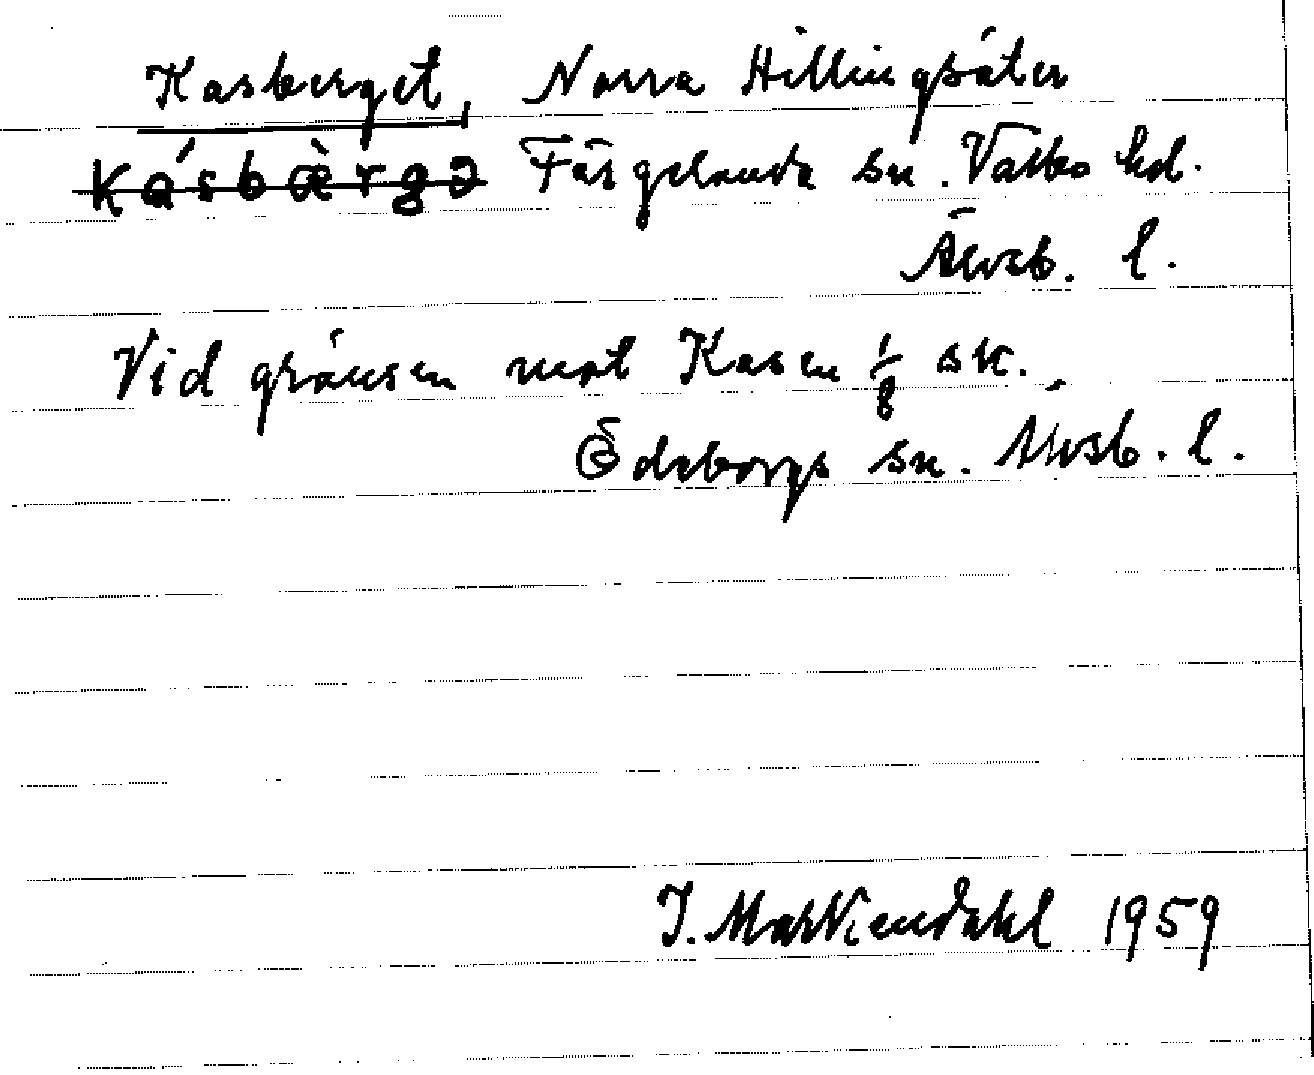 Kasberget, Norra Hillingsäter
kásbæ̀rgə Färgelanda sn. Valbo hd.
Älvsb. l.
Vid gränsen mot Kasen 1/8 sk.
Ödeborgs sn. Älvsb. l.
J. Markendahl 1959